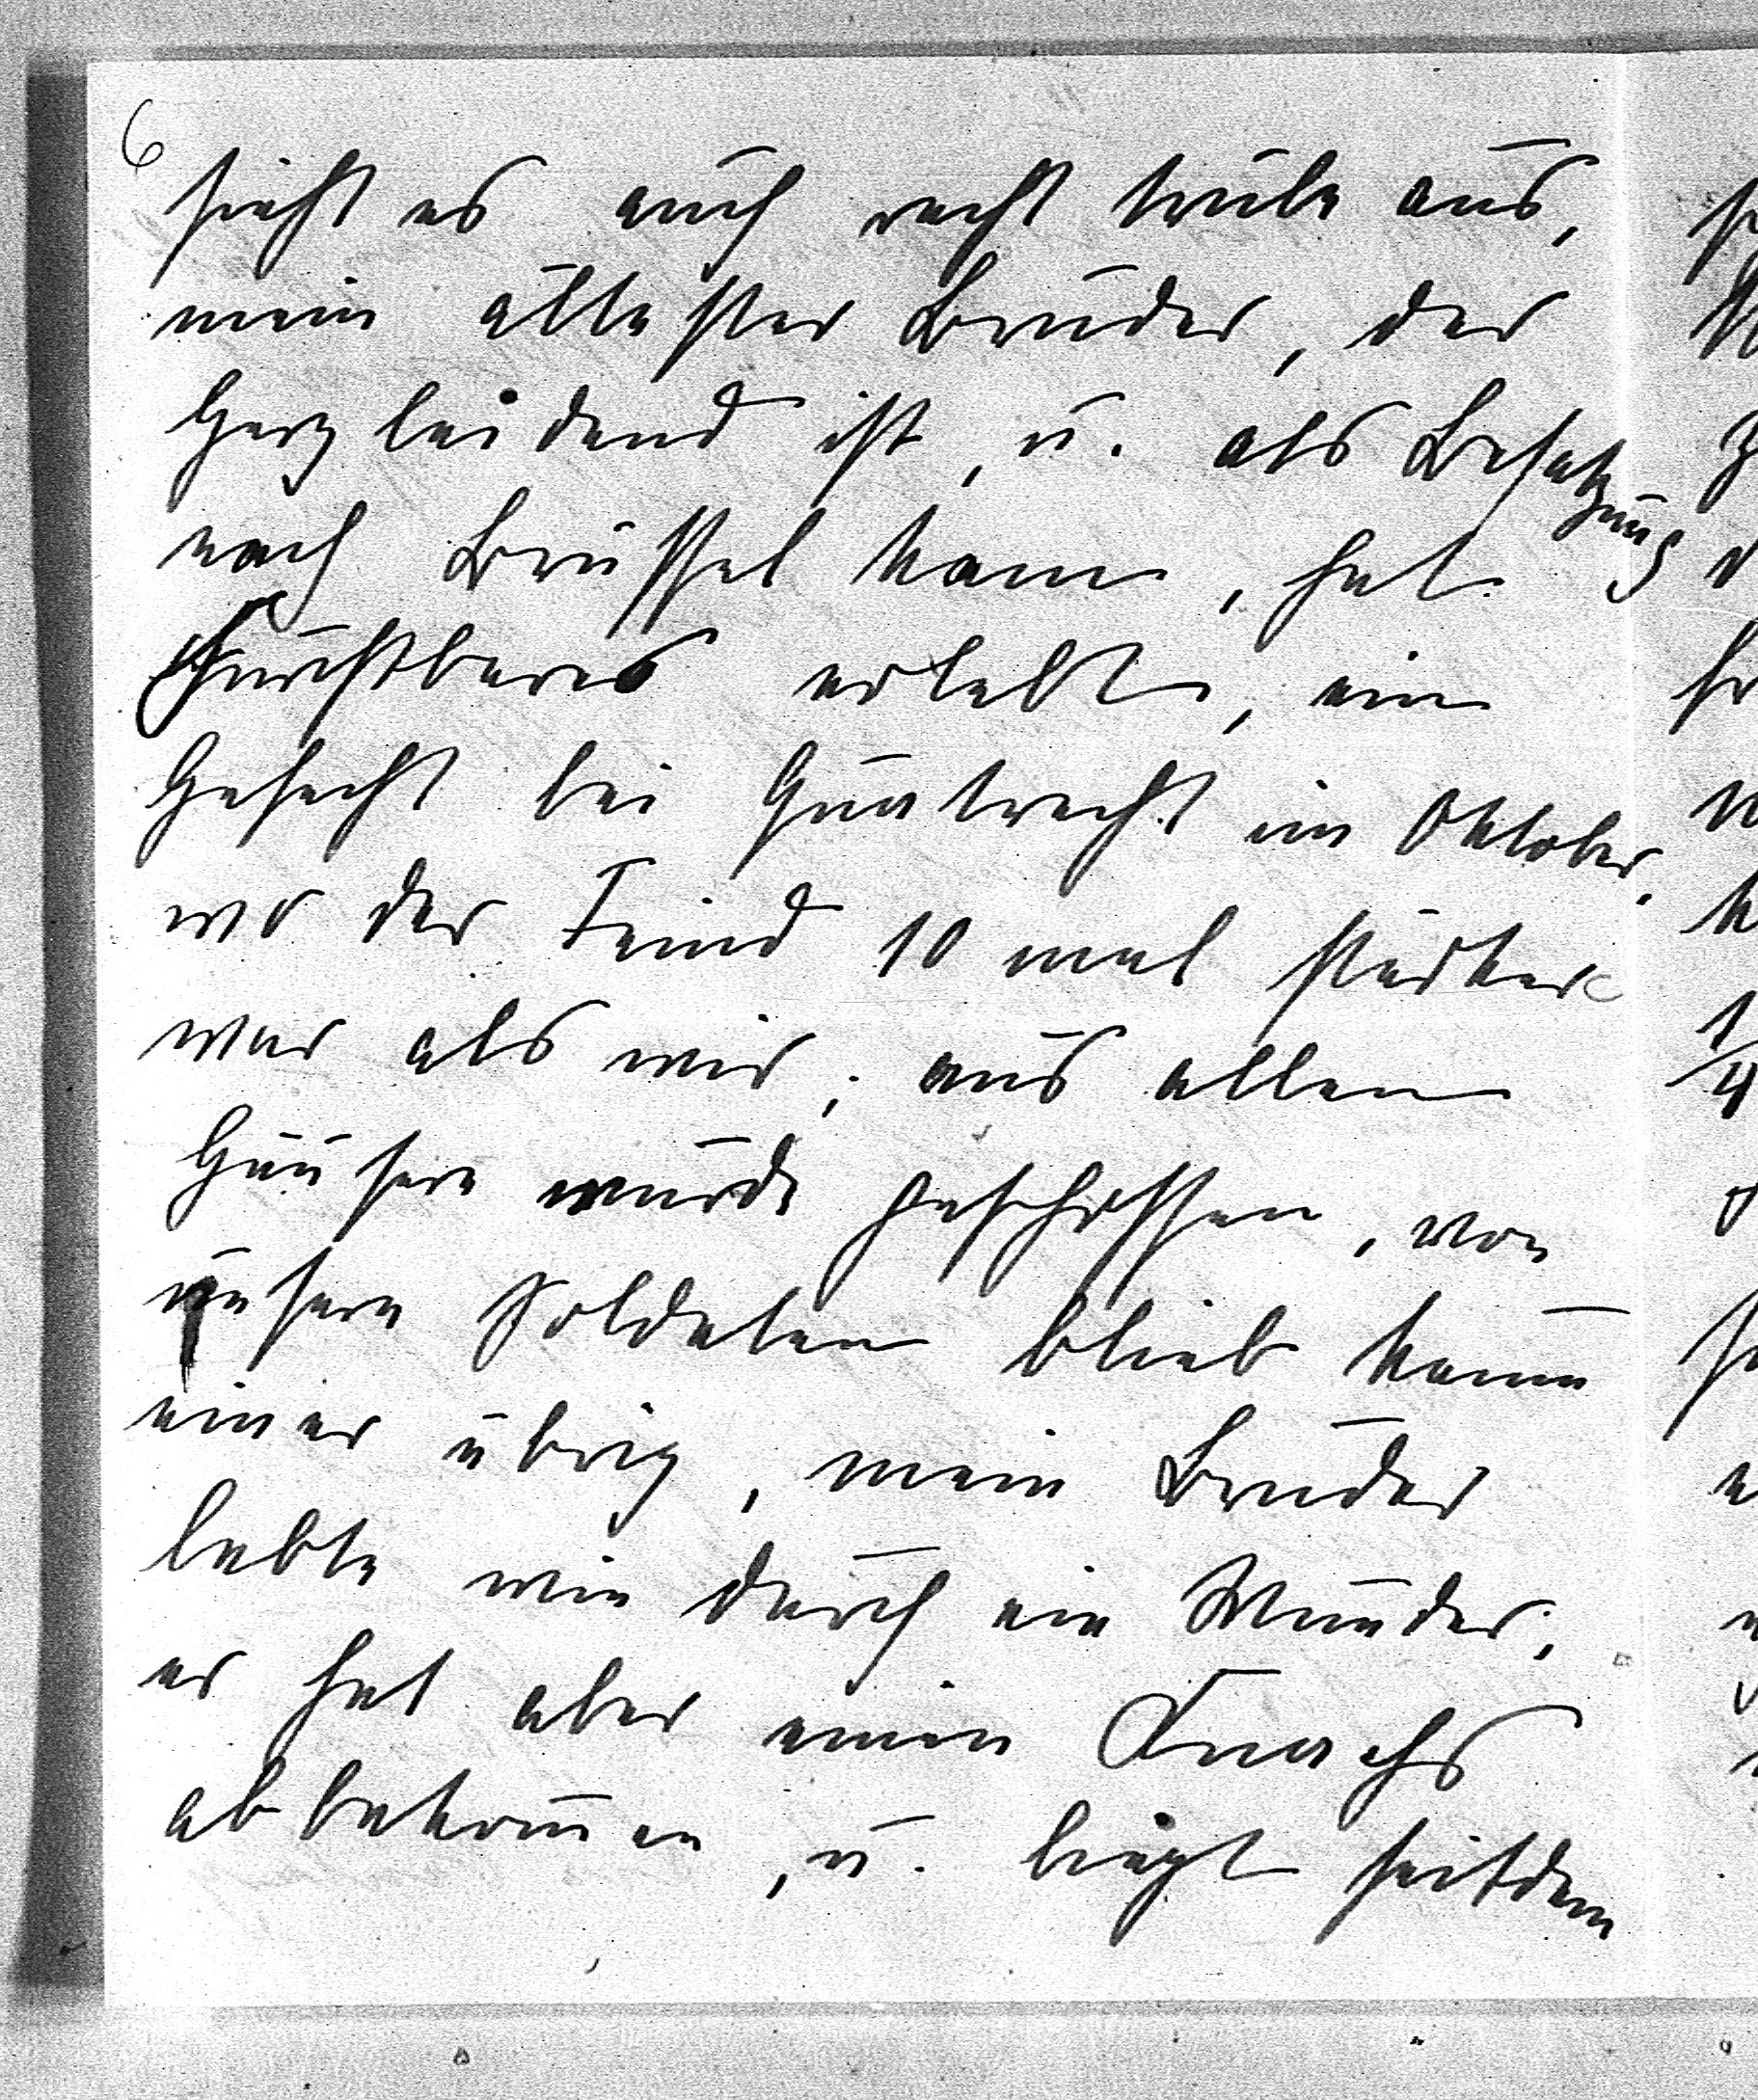 6
sieht es auch recht trübe aus,
mein ältester Bruder, der
Herzleidend ist, u. als Besatzung
nach Brüssel kam, hat
Furchtbares erlebt, ein
Gefecht bei im Oktober,
wo der Feind 10 mal stärker
war als wir; aus allen
Häusern wurde geschossen, von
unsern Soldaten blieb kaum
einer übrig, mein Bruder
lebte wie durch ein Wunder,
er hat aber einen
abbekommen, u. liegt seitdem